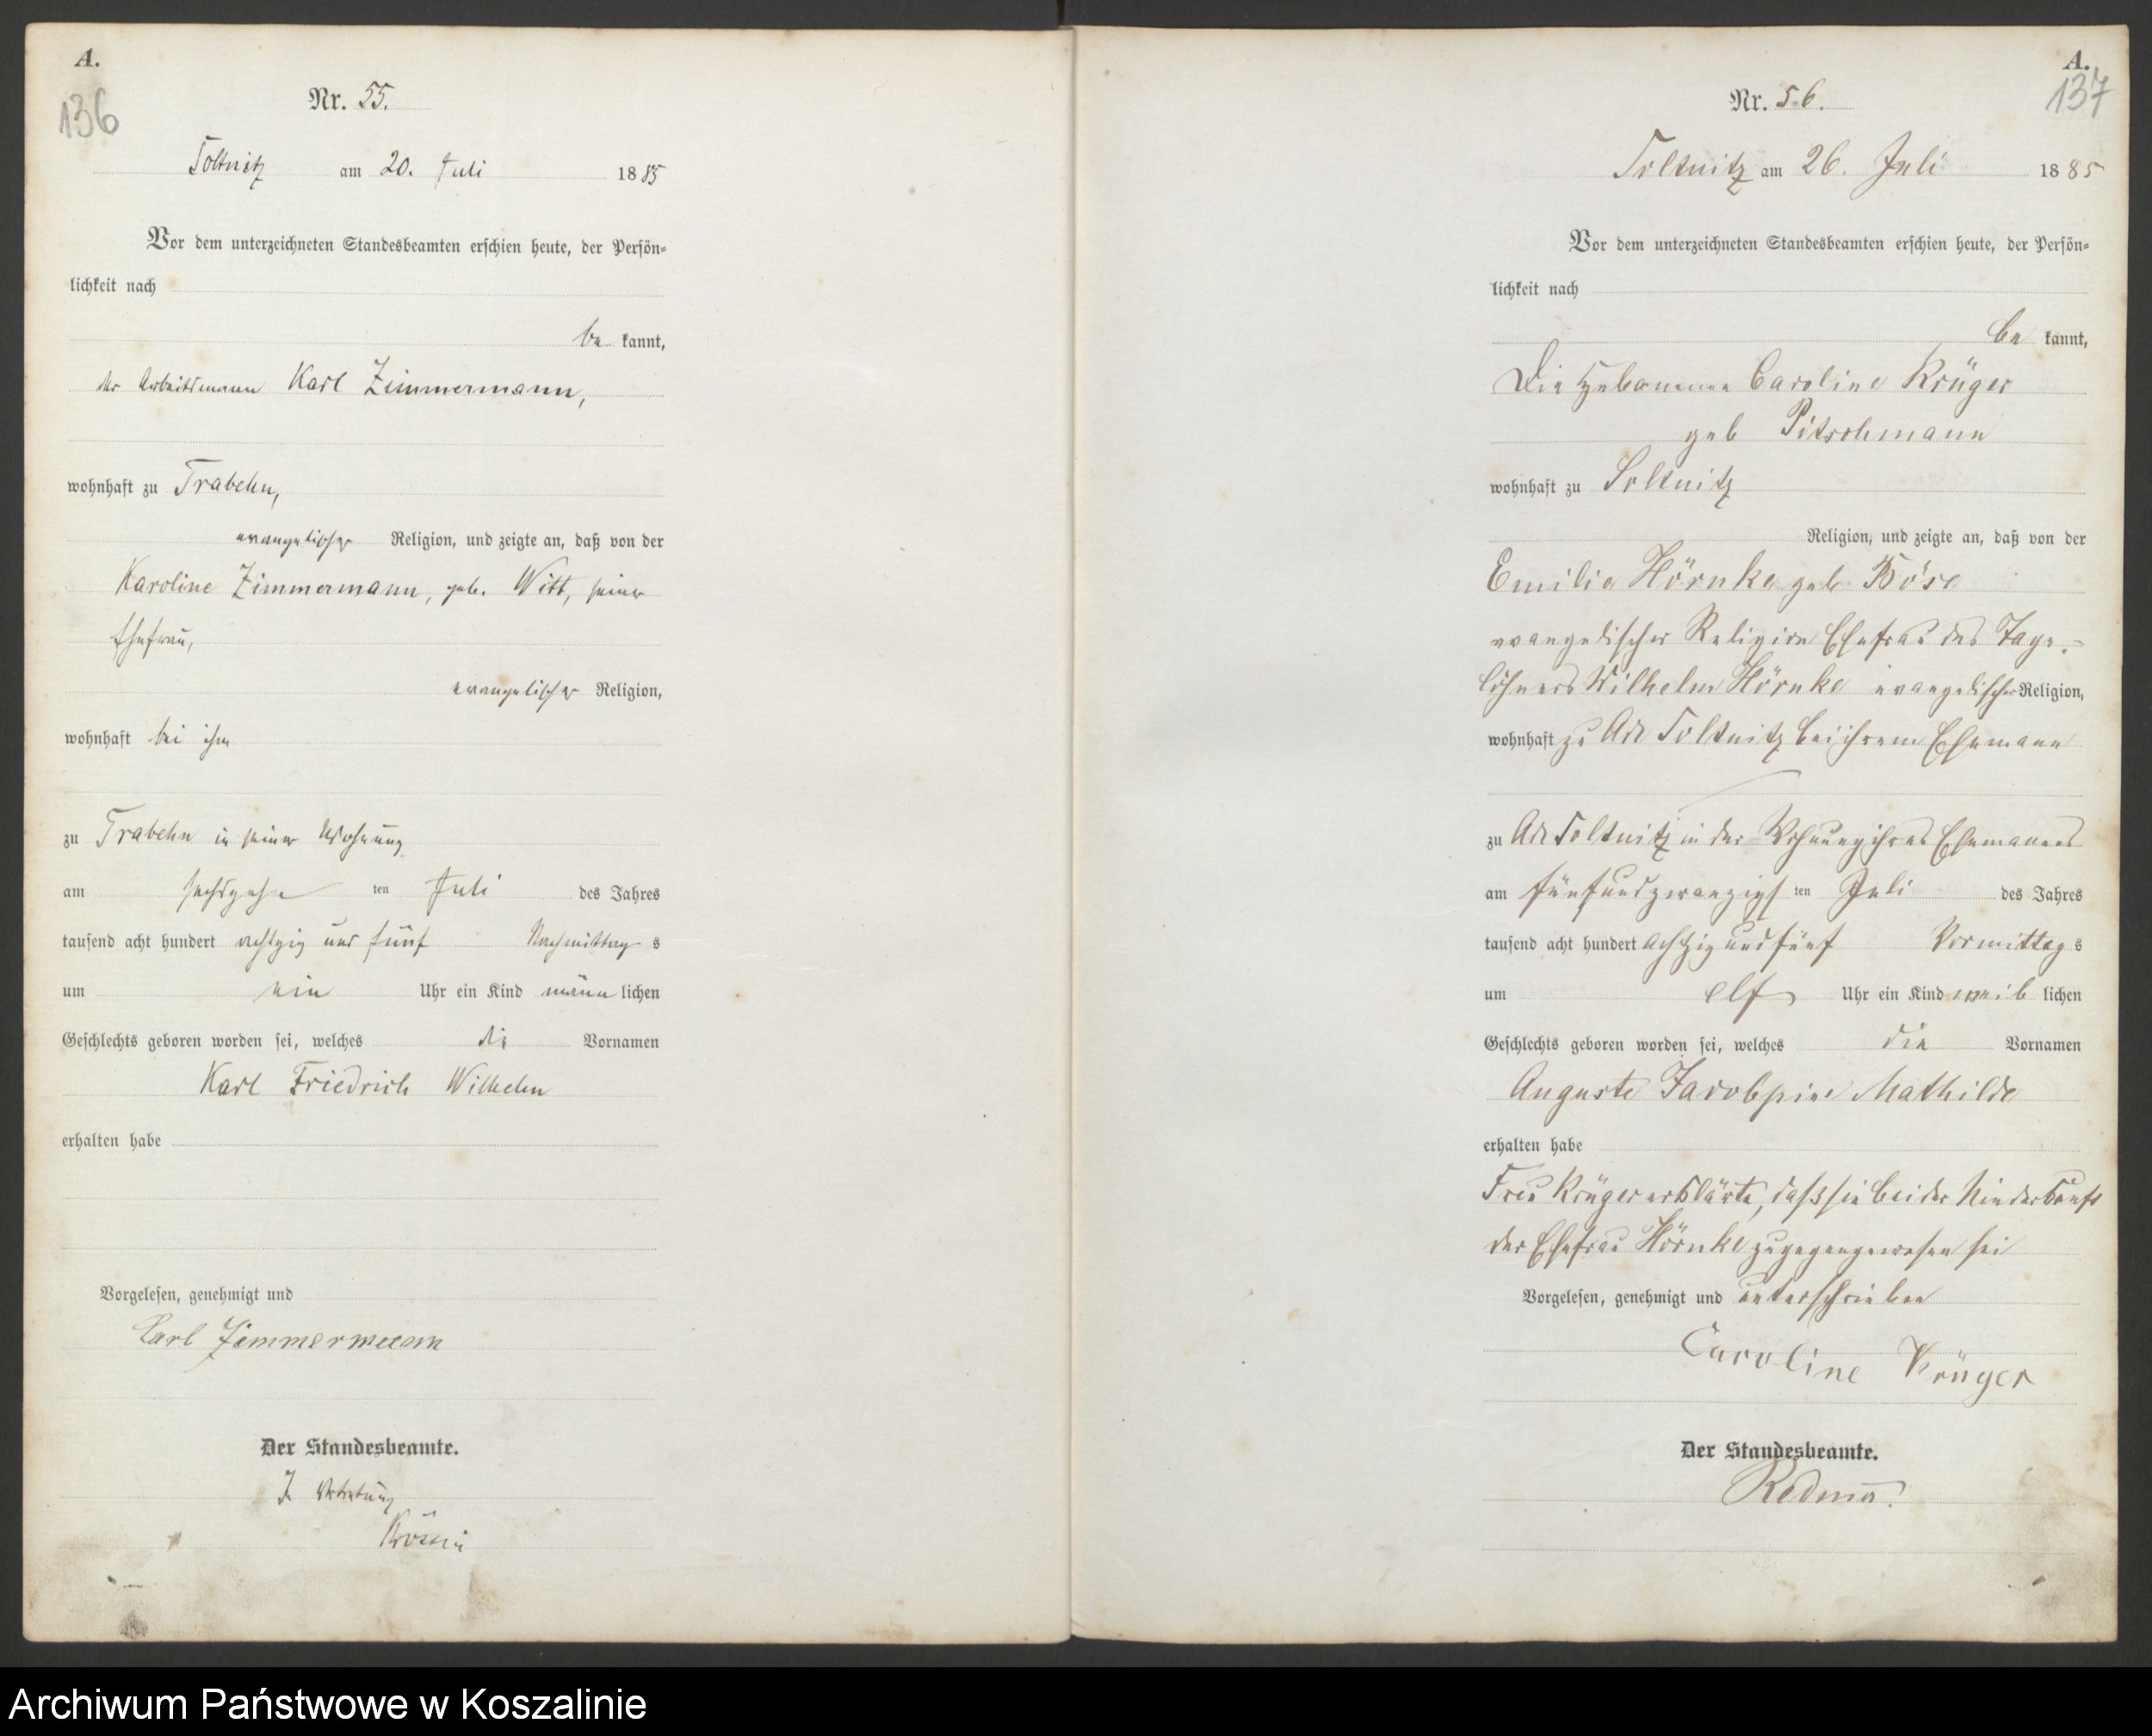 A.
136
Nr. 55.
Soltnitz am 20. Juli 1885
Vor dem unterzeichneten Standesbeamten erschien heute, der Persön=
lichkeit nach
be kannt,
der Arbeitsmann Karl Zimmermann,
wohnhaft zu Trabehn,
evangelischer Religion, und zeigte an, daß von der
Karoline Zimmermann, geb. Witt, seiner
Ehefrau,
evangelischer Religion,
wohnhaft bei ihm
zu Trabehn in seiner Wohnung
am sechszehn ten Juli des Jahres
tausend acht hundert achtzig und fünf Nachmittag s
um ein Uhr ein Kind männ lichen
Geschlechts geboren worden sei, welches die Vornamen
Karl Friedrich Wilhelm
erhalten habe
Vorgelesen, genehmigt und
Carl Zimmermann
Der Standesbeamte.
In Vertretung
A.
137
Nr. 56.
Soltnitz am 26. Juli 1885
Vor dem unterzeichneten Standesbeamten erschien heute, der Persön=
lichkeit nach
be kannt,
Die Hebamme Caroline Krüger
geb Pitschmann
wohnhaft zu Soltnitz
Religion, und zeigte an, daß von der
Emilie Hörnke geb Böse
evangelischer Religion Ehefrau des Tage=
löhners Wilhelm Hörnke evangelischer Religion,
wohnhaft zu Adl Soltnitz bei ihrem Ehemann
zu Adl Soltnitz in der Wohnung ihres Ehemannes
am fünfundzwanzigs ten Juli des Jahres
tausend acht hundert achtzig und fünf Vormittag s
um elf Uhr ein Kind weib lichen
Geschlechts geboren worden sei, welches die Vornamen
Auguste Jacobine Mathilde
erhalten habe
Frau Krüger erklärte, daß sie bei der Niederkunft
der Ehefrau Hörnke zugegen gewesen sei
Vorgelesen, genehmigt und unterschrieben
Caroline Krüger
Der Standesbeamte.
Archiwum Państwowe w Koszalinie